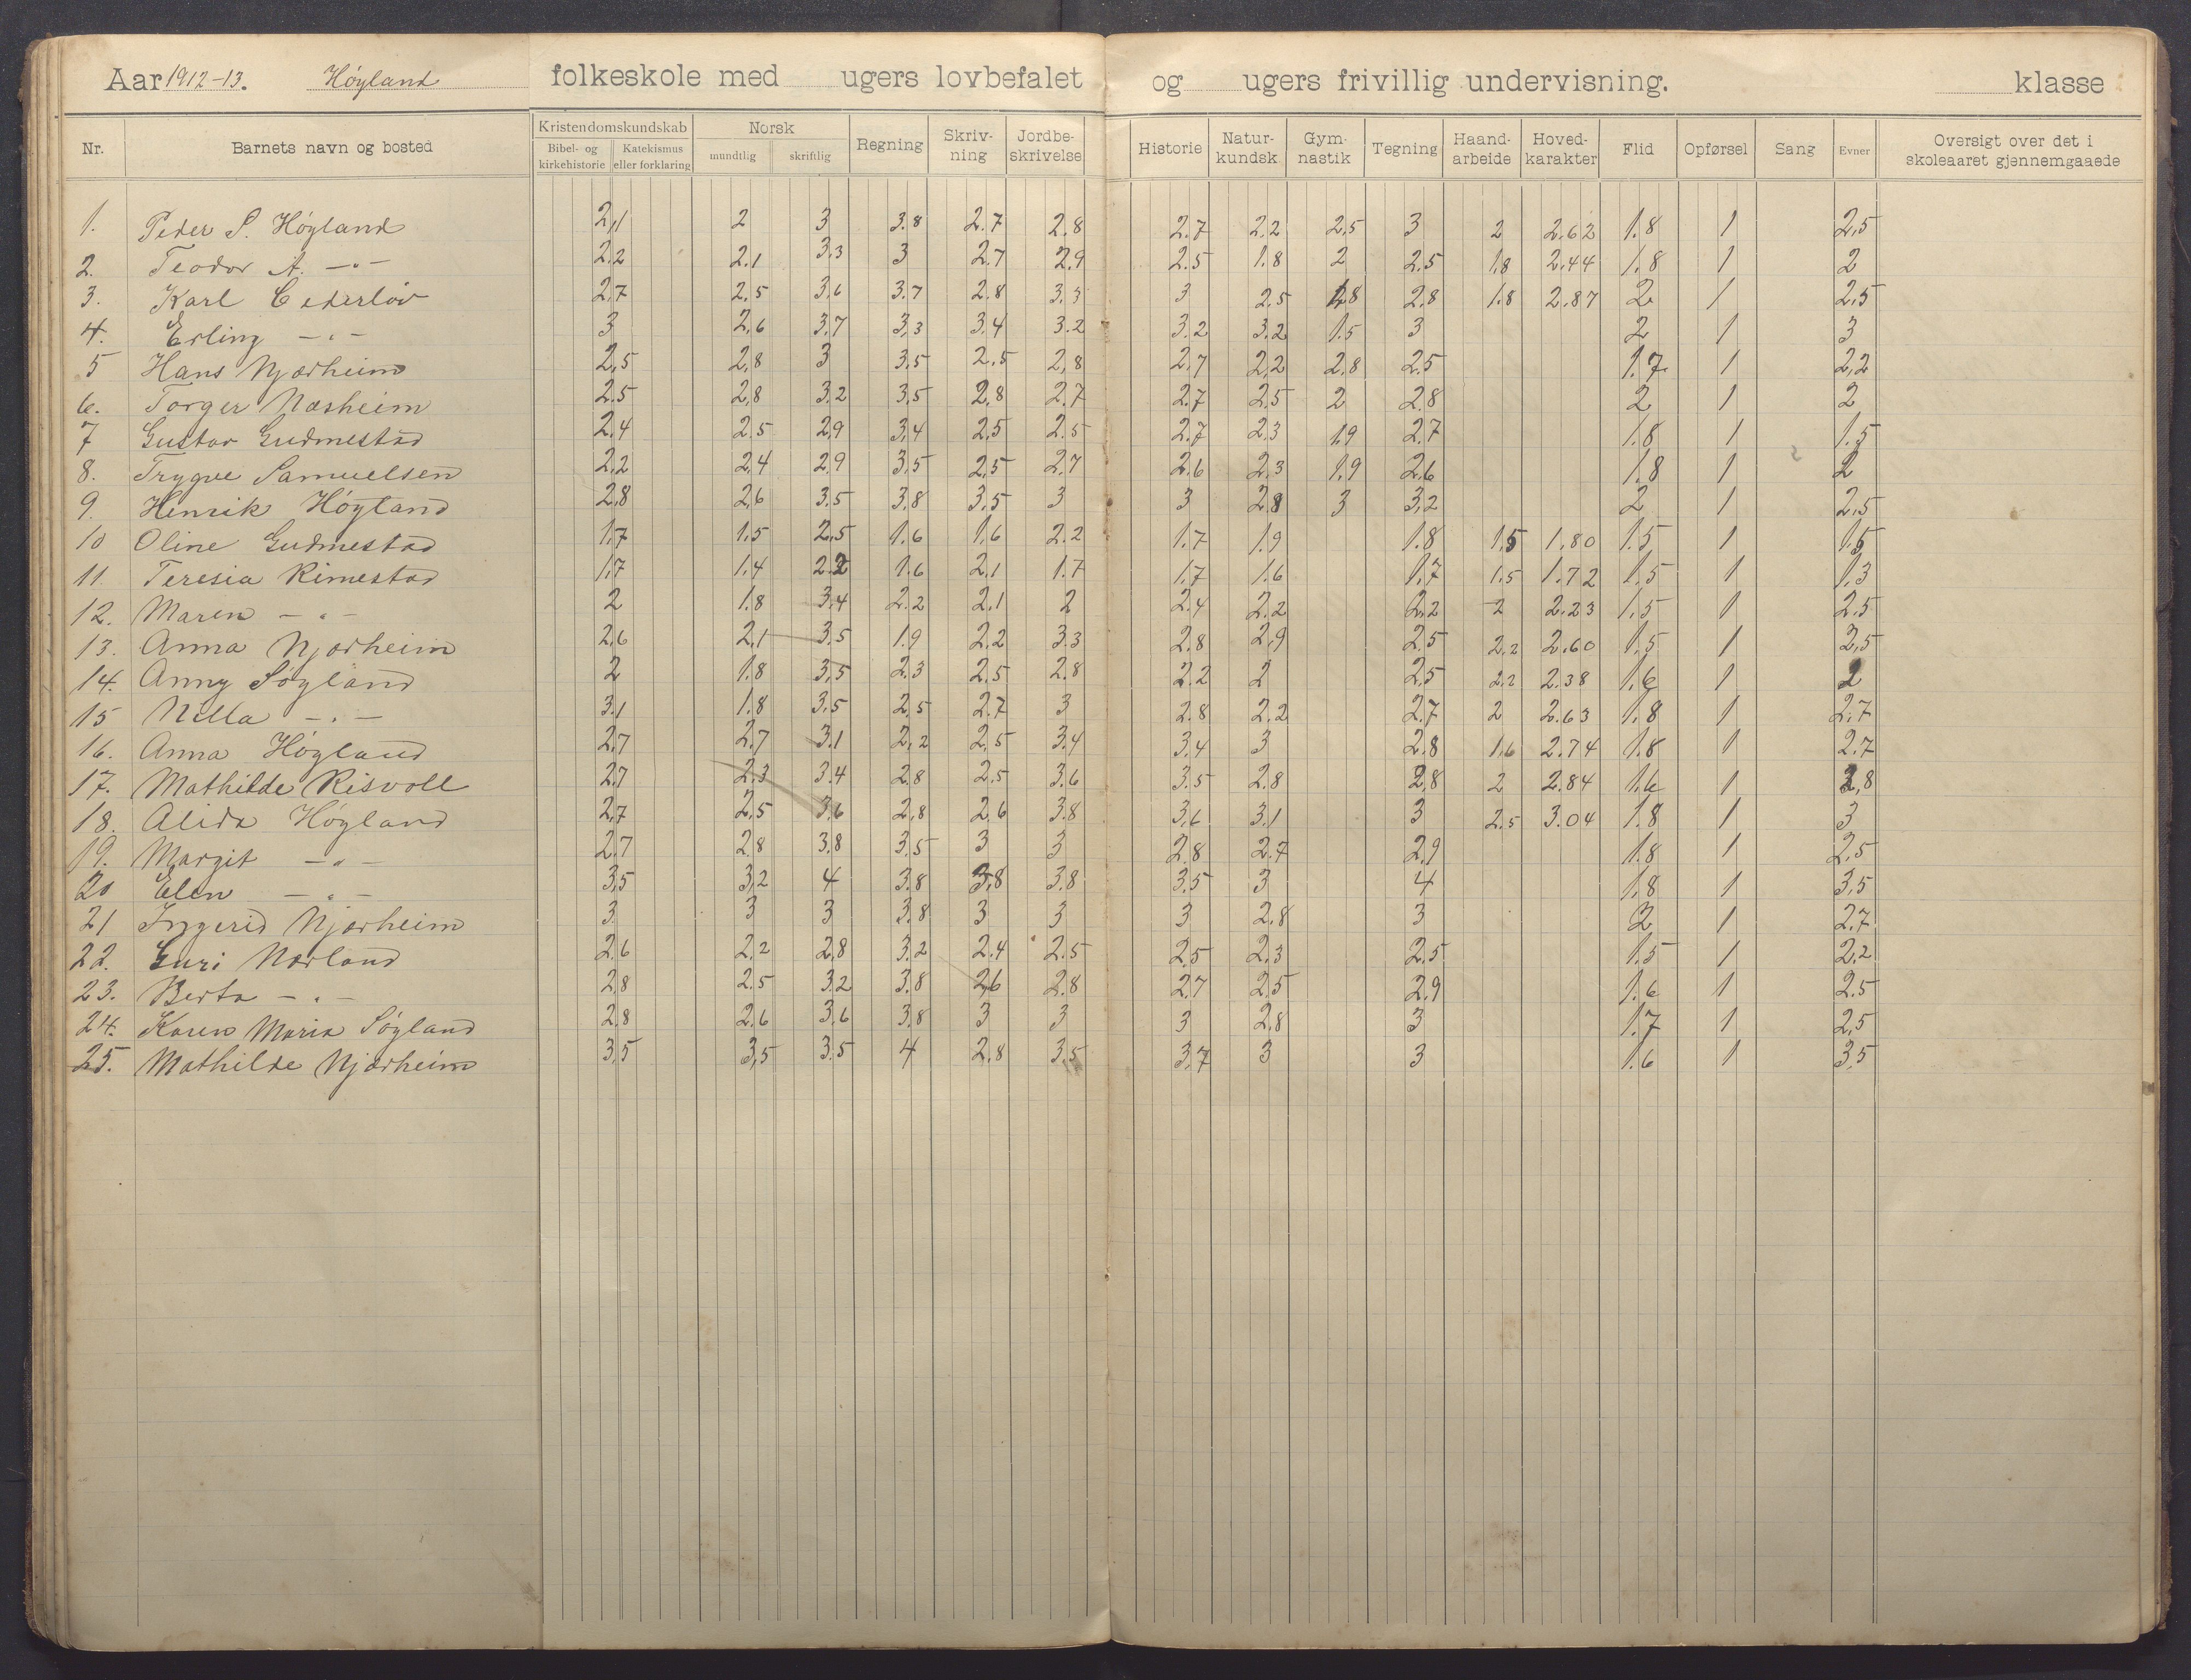 Aar 1912-13. Høyland folkeskole med ugers lovbefalet og ugers frivillig undervisning. klasse
Nr. Barnets navn og bosted Kristendomskundskab Bibel- og kirkehistorie Katekismus eller forklaring Norsk mundtlig skriftlig Regning Skriv-ning Jordbe-skrivelse Historie Natur-kundsk. Gym-nastik Tegning Haand-arbeide Hoved-karakter Flid Opførsel Sang Evner Oversigt over det i skoleaaret gjennemgaaede
1. Peder S. Høyland 2,1 2 3 3.8 2.7 2.8 2.7 2.2 2,5 3 2 2.62 1.8 1 2,5
2. Teodor A. -"- 2.2 2.1 3,3 3 2.7 2.9 2.5 1.8 2 2.5 1,8 2.44 1,8 1 2
3. Karl Cederløv 2,7 2,5 3,6 3.7 2.8 3,3 3 2.5 1,8 2,8 1.8 2.87 2 1 2,5
4. Erling -"- 3 2,6 3,7 3,3 3,4 3.2 3.2 3,2 1.5 3 2 1 3
5 Hans Njærheim 2,5 2,8 3 3,5 2.5 2,8 2,7 2,2 2,8 2.5 1.7 1 2,2
6. Torger Næsheim 2.5 2,8 3.2 3,5 2,8 2.7 2.7 2,5 2 2.8 2 1 2
7 Gustav Gudmestad 2.4 2.5 2,9 3,4 2,5 2.5 2.7 2.3 1,9 2.7 1.8 1 1.5
8. Trygve Samuelsen 2,2 2.4 2.9 3,5 2,5 2.7 2.6 2,3 1,9 2,6 1,8 1 2
9. Henrik Høyland 2,8 2,6 3.5 3,8 3,5 3 3 2,8 3 3,2 2 1 2,5
10 Oline Gudmestad 1,7 1.5 2,5 1.6 1,6 2.2 1.7 1,9 1.8 1,5 1.80 1.5 1 1,5
11. Teresia Rimestad 1,7 1,4 2.2 1.6 2,1 1.7 1,7 1.6 1,7 1.5 1.72 1,5 1 1,3
12. Maren -"- 2 1.8 3,4 2.2 2,1 2 2.4 2.2 2,2 2 2.23 1,5 1 2,5
13. Anna Njærheim 2,6 2,1 3.5 1.9 2,2 3.3 2.8 2,9 2.5 2,2 2.60 1.5 1 2,5
14. Anny Søyland 2 1.8 3,5 2.3 2.5 2.8 2.2 2 2,5 2,2 2.38 1,6 1 2
15 Nella -"- 3.1 1.8 3.5 2,5 2.7 3 2.8 2.2 2.7 2 2.63 1,8 1 2,7
16. Anna Høyland 2,7 2.7 3.1 2,2 2,5 3,4 3,4 3 2,8 1,6 2.74 1.8 1 2.7
17. Mathilde Risvoll 2.7 2.3 3.4 2,8 2,5 3,6 3.5 2.8 2,8 2 2.84 1,6 1 2,8
18. Alida Høyland 2,7 2,5 3,6 2,8 2,6 3.8 3,6 3,1 3 2.5 3.04 1.8 1 3
19. Margit -"- 2.7 2.8 3,8 3,5 3 3 2.8 2.7 2,9 1.8 1 2,5
20 Elen -"- 3,5 3,2 4 3.8 3,8 3.8 3.5 3 4 1,8 1 3,5
21 Ingerid Njærheim 3 3 3 3.8 3 3 3 2.8 3 2 1 2.7
22. Guri Nærland 2.6 2.2 2,8 3,2 2.4 2.5 2.5 2,3 2.5 1.5 1 2,2
23. Berta -"- 2.8 2.5 3.2 3.8 2,6 2.8 2.7 2.5 2.9 1.6 1 2.5
24. Karen Maria Søyland 2.8 2.6 3,6 3,8 3 3 3 2,8 3 1.7 1 2,5
25. Mathilde Njærheim 3,5 3,5 3.5 4 2,8 3,5 3.7 3 3 1.6 1 3,5